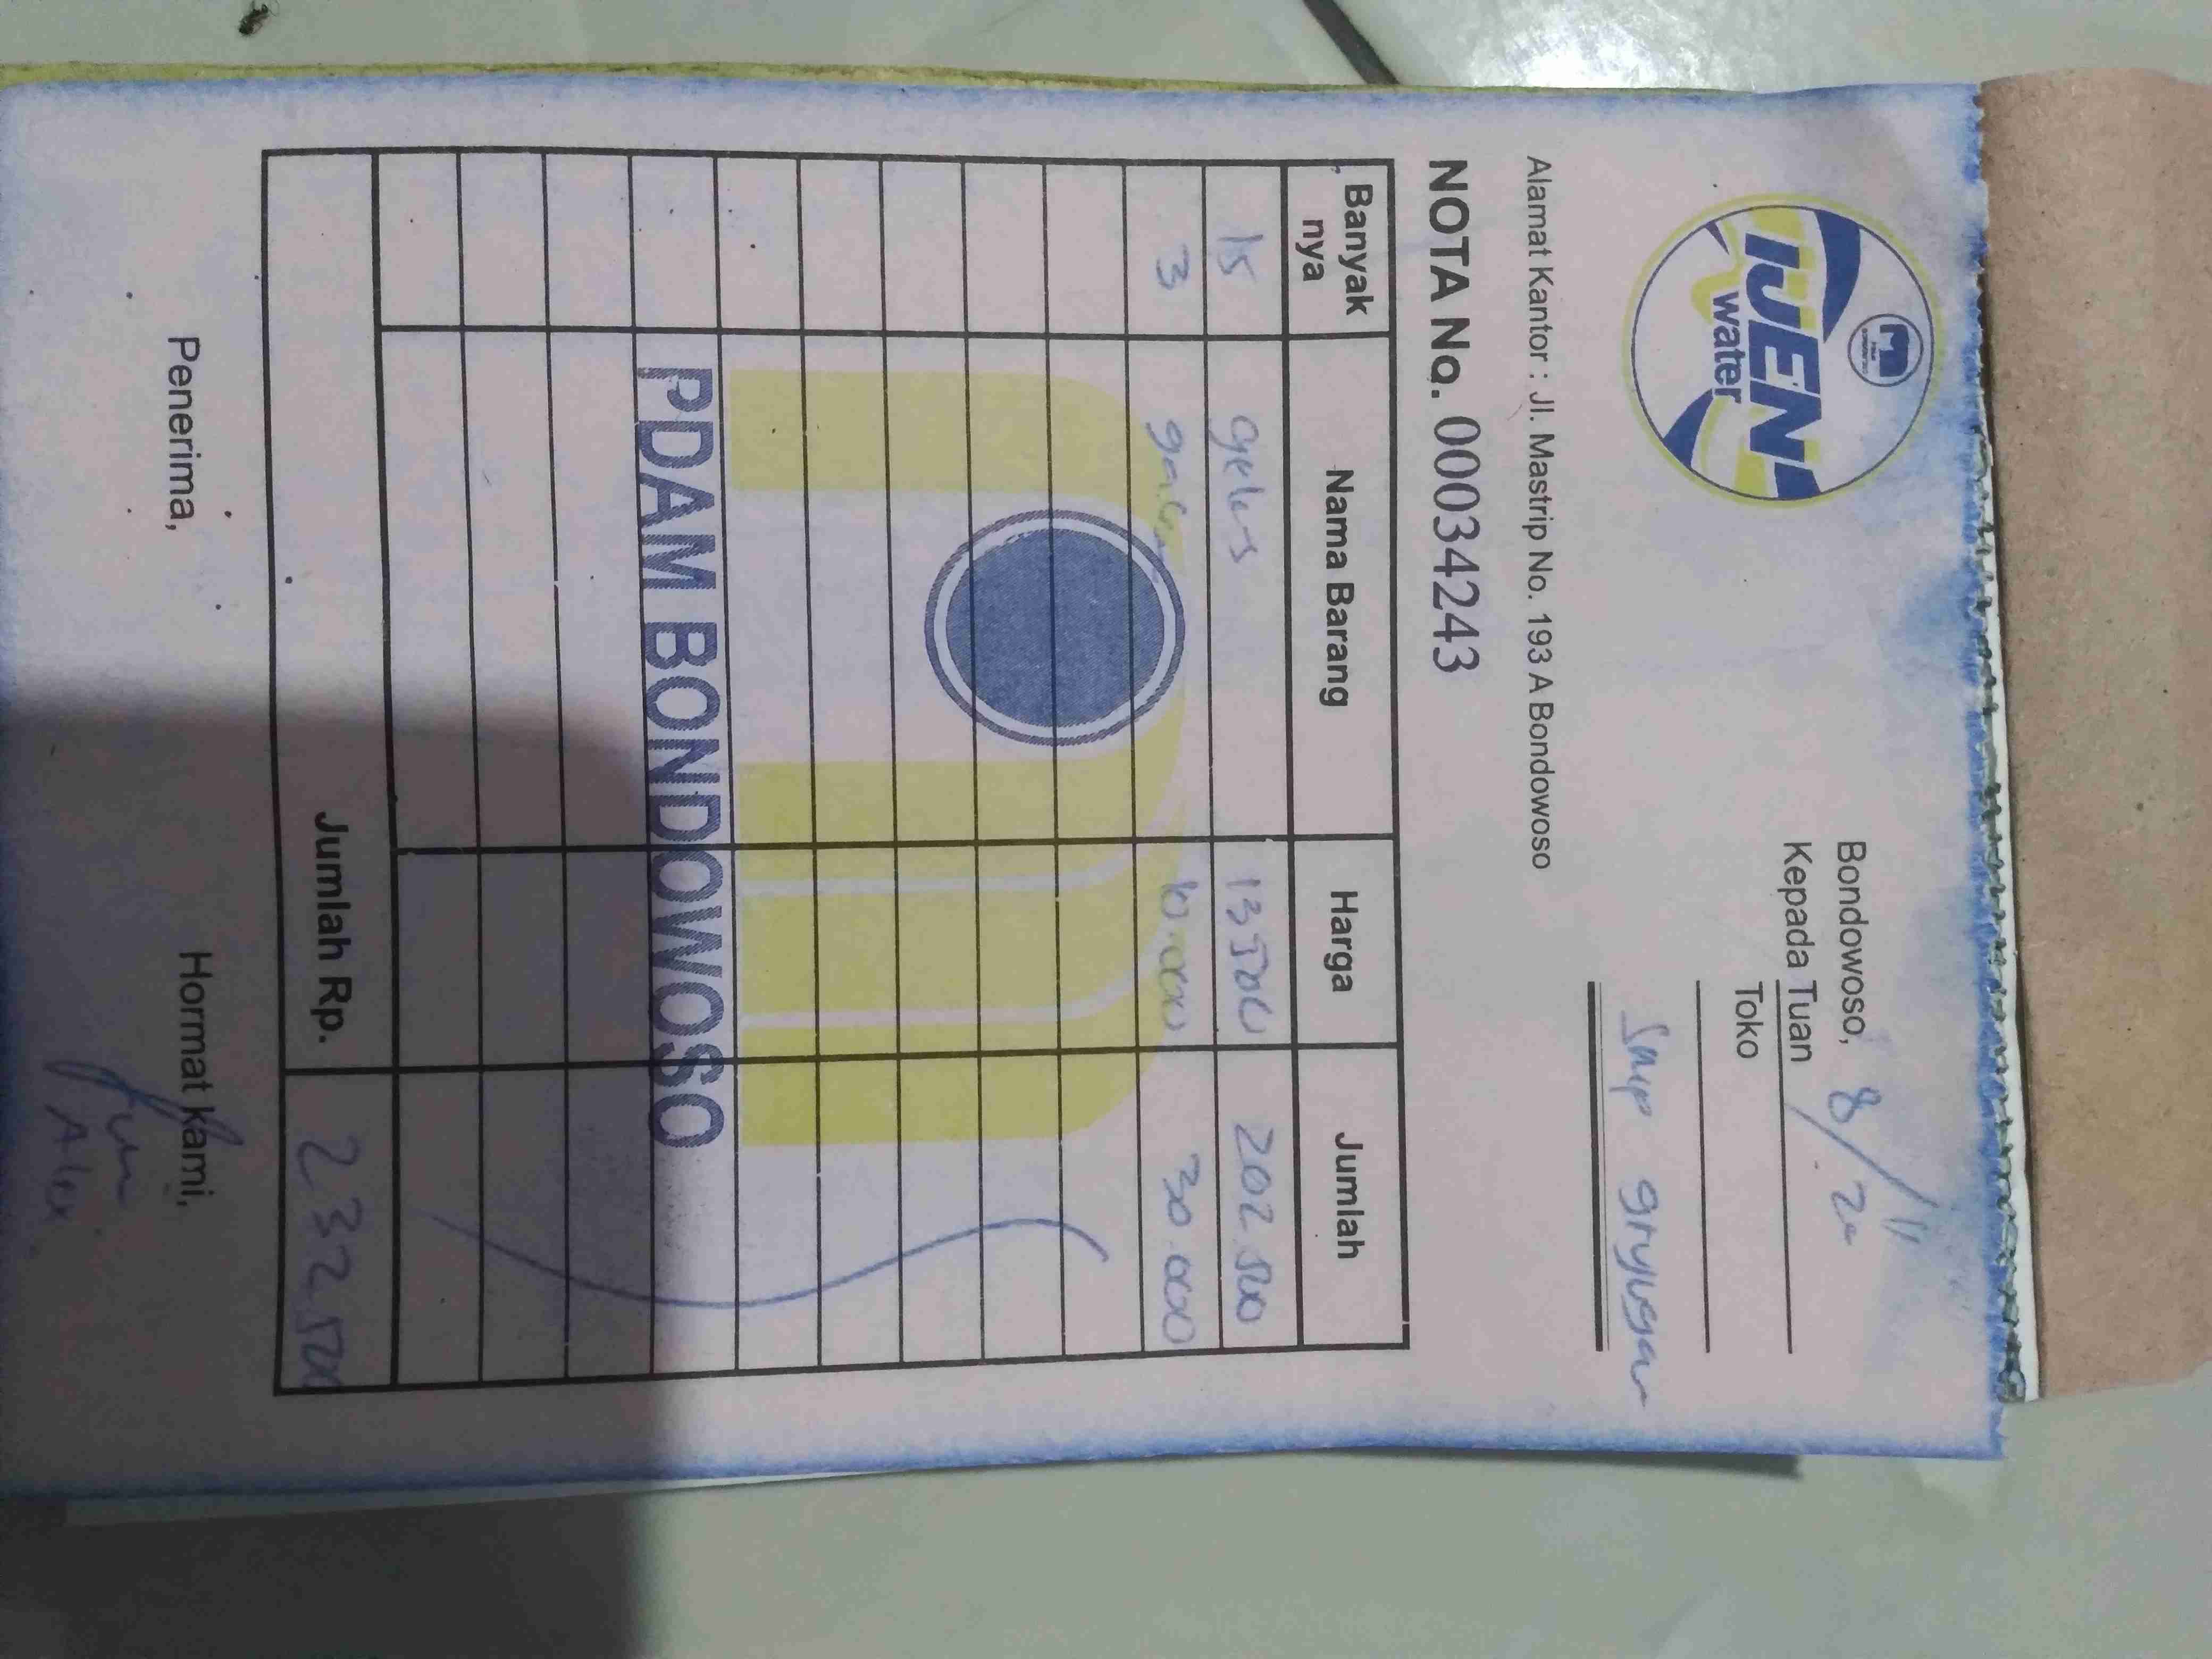 IJEN
water
Bondowoso, 8/11 20
Kepada Tuan
Toko
Smp
Alamat Kantor : Jl. Mastrip No. 193 A Bondowoso
NOTA No. 00034243
Banyak nya Nama Barang Harga Jumlah
15 gelas 13500 202.500
3 galon 10.000 30.000
PDAM BONDOWOSO
Jumlah Rp. 232.500
Penerima, Hormat kami,
Alex